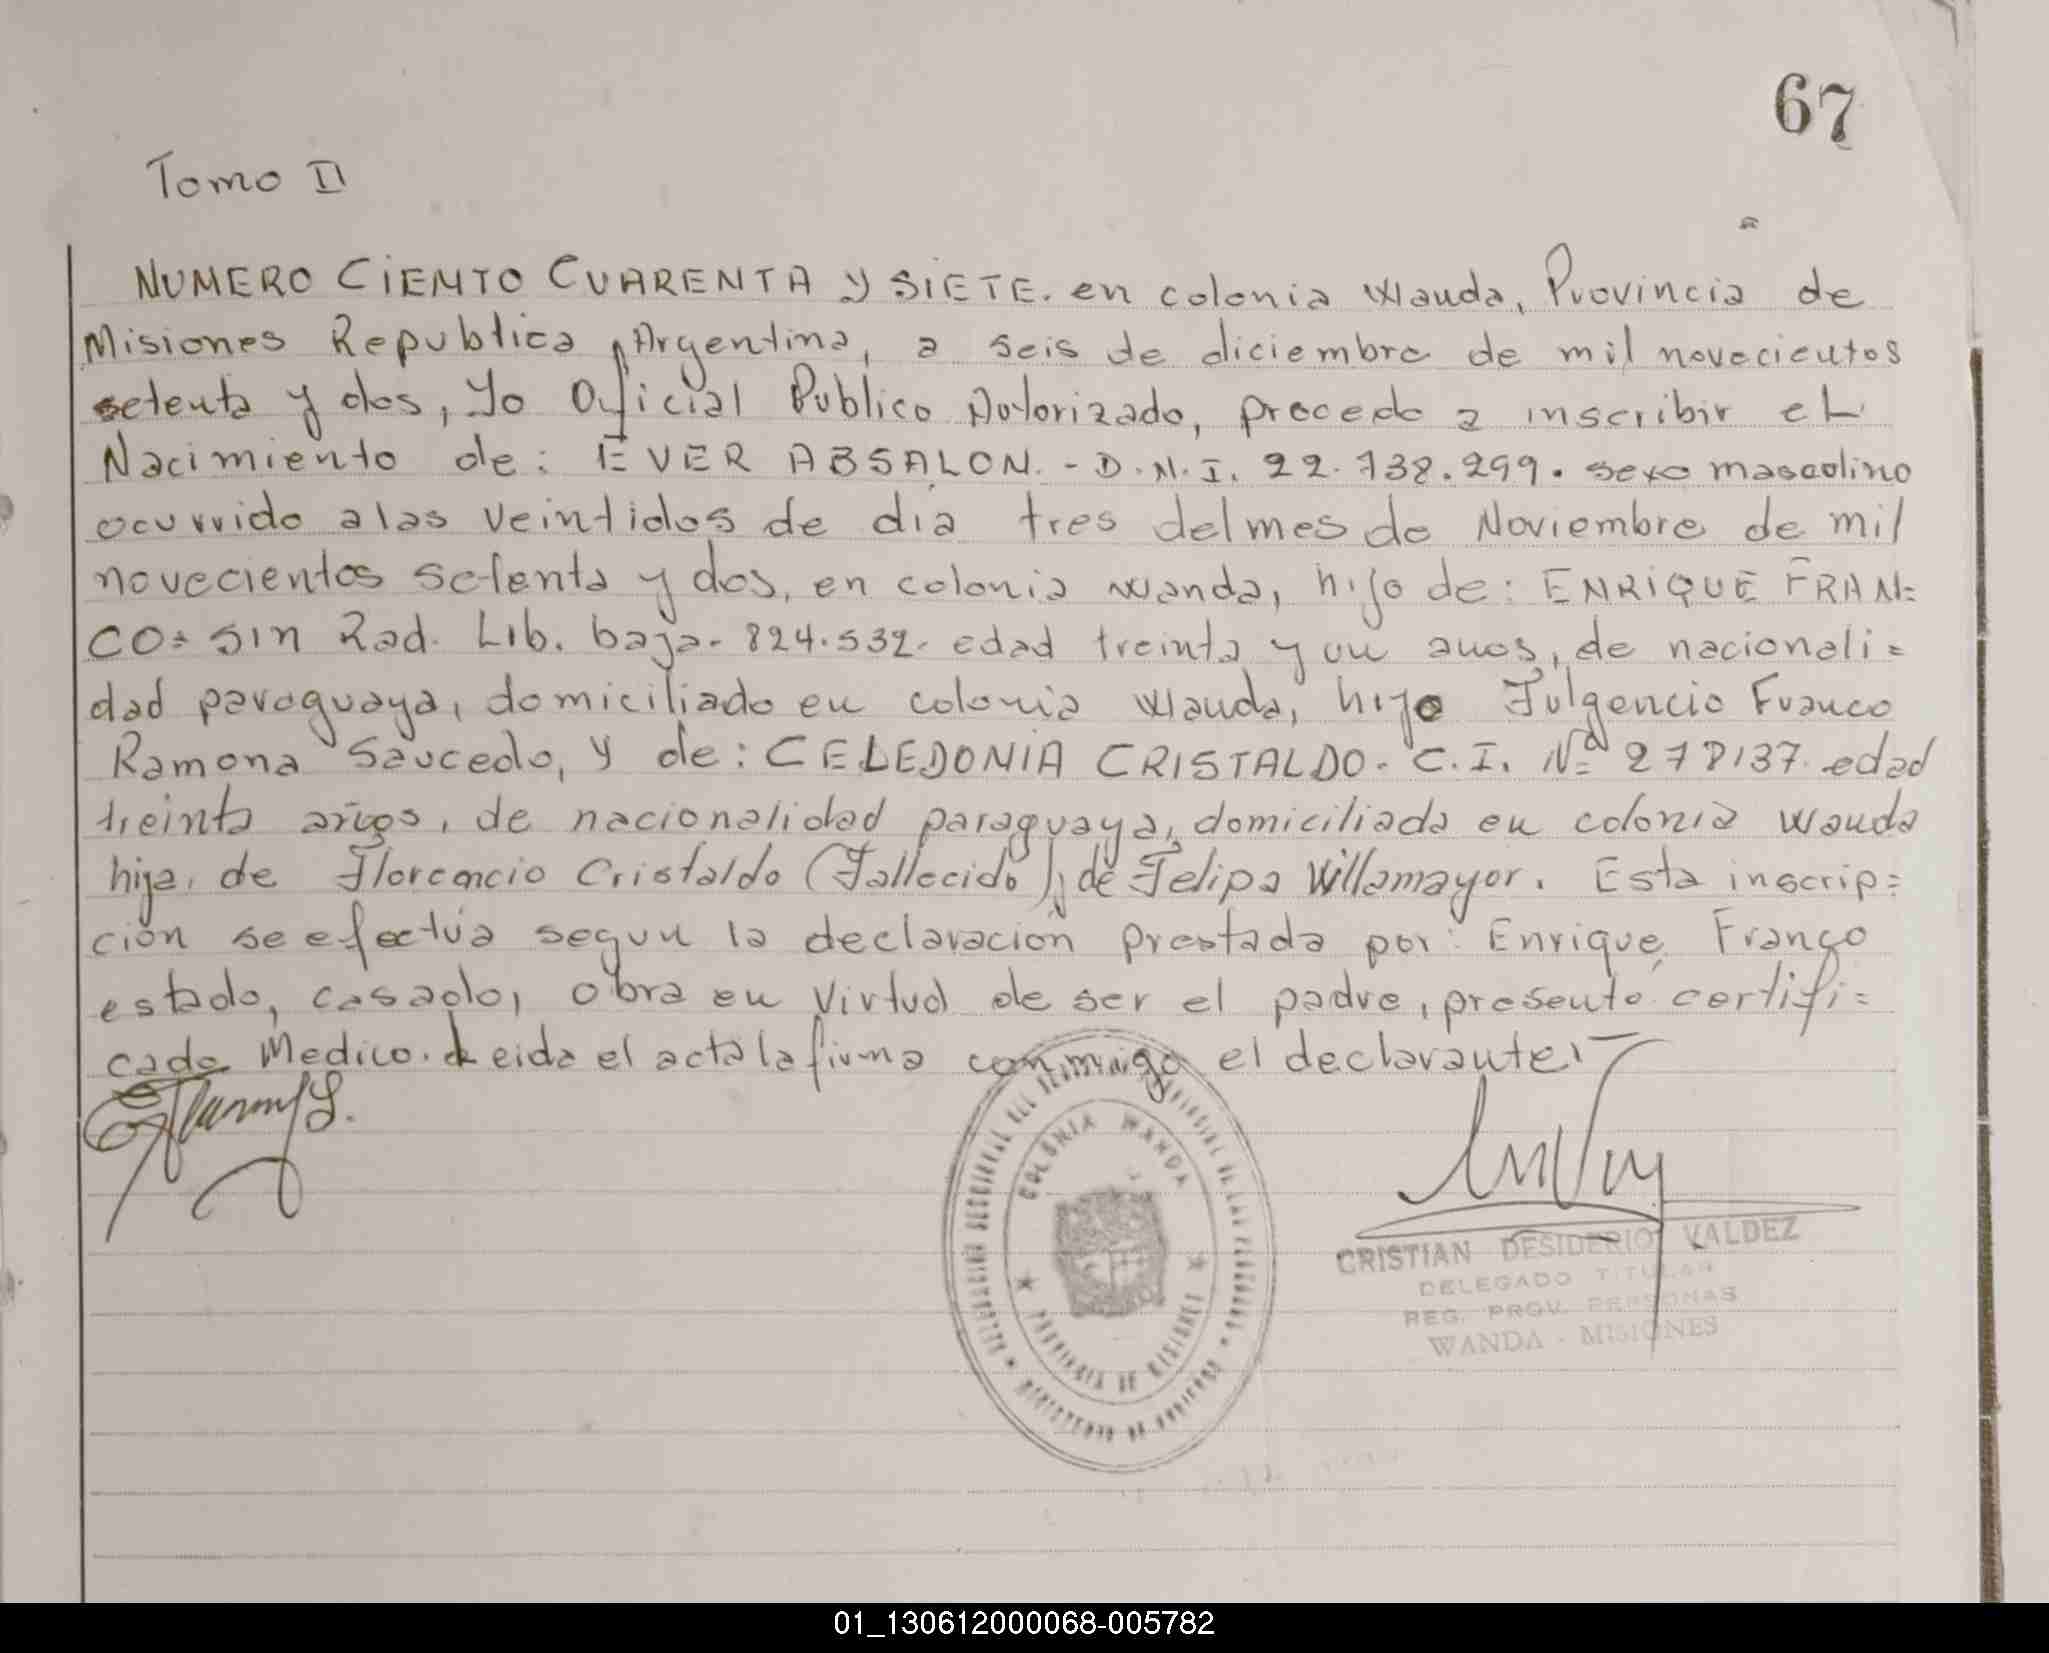 67
Tomo II
NUMERO CIENTO CUARENTA Y SIETE. en colonia Wanda, Provincia de
Misiones Republica Argentina, a seis de diciembre de mil novecientos
setenta y dos, Yo Oficial Publico Autorizado, procedo a inscribir el
Nacimiento de: EVER ABSALON. - D.N.I. 22.738.299. sexo masculino
ocurrido a las veintidos de dia tres del mes de Noviembre de mil
novecientos setenta y dos, en colonia wanda, hijo de: ENRIQUE FRAN=
CO= sin Rad. Lib. baja- 824.532. edad treinta y un anos, de nacionali=
dad paraguaya, domiciliado en colonia Wanda, hijo Fulgencio Franco
Ramona Saucedo, y de: CELEDONIA CRISTALDO. C.I. Nº 278137. edad
treinta años, de nacionalidad paraguaya, domiciliada en colonia wanda
hija, de Florencio Cristaldo (Fallecido) y de Felipa Villamayor. Esta inscrip=
ción se efectúa segun la declaración prestada por: Enrique Franco
estado, casado, obra en virtud de ser el padre, presentó certifi=
cado Medico. Leida el acta la firma conmigo el declarante.
COLONIA WANDA
PROVINCIA DE MISIONES
MINISTERIO DE GOBIERNO
CRISTIAN DESIDERIO VALDEZ
DELEGADO TITULAR
REG. PROV. PERSONAS
WANDA - MISIONES
01_130612000068-005782